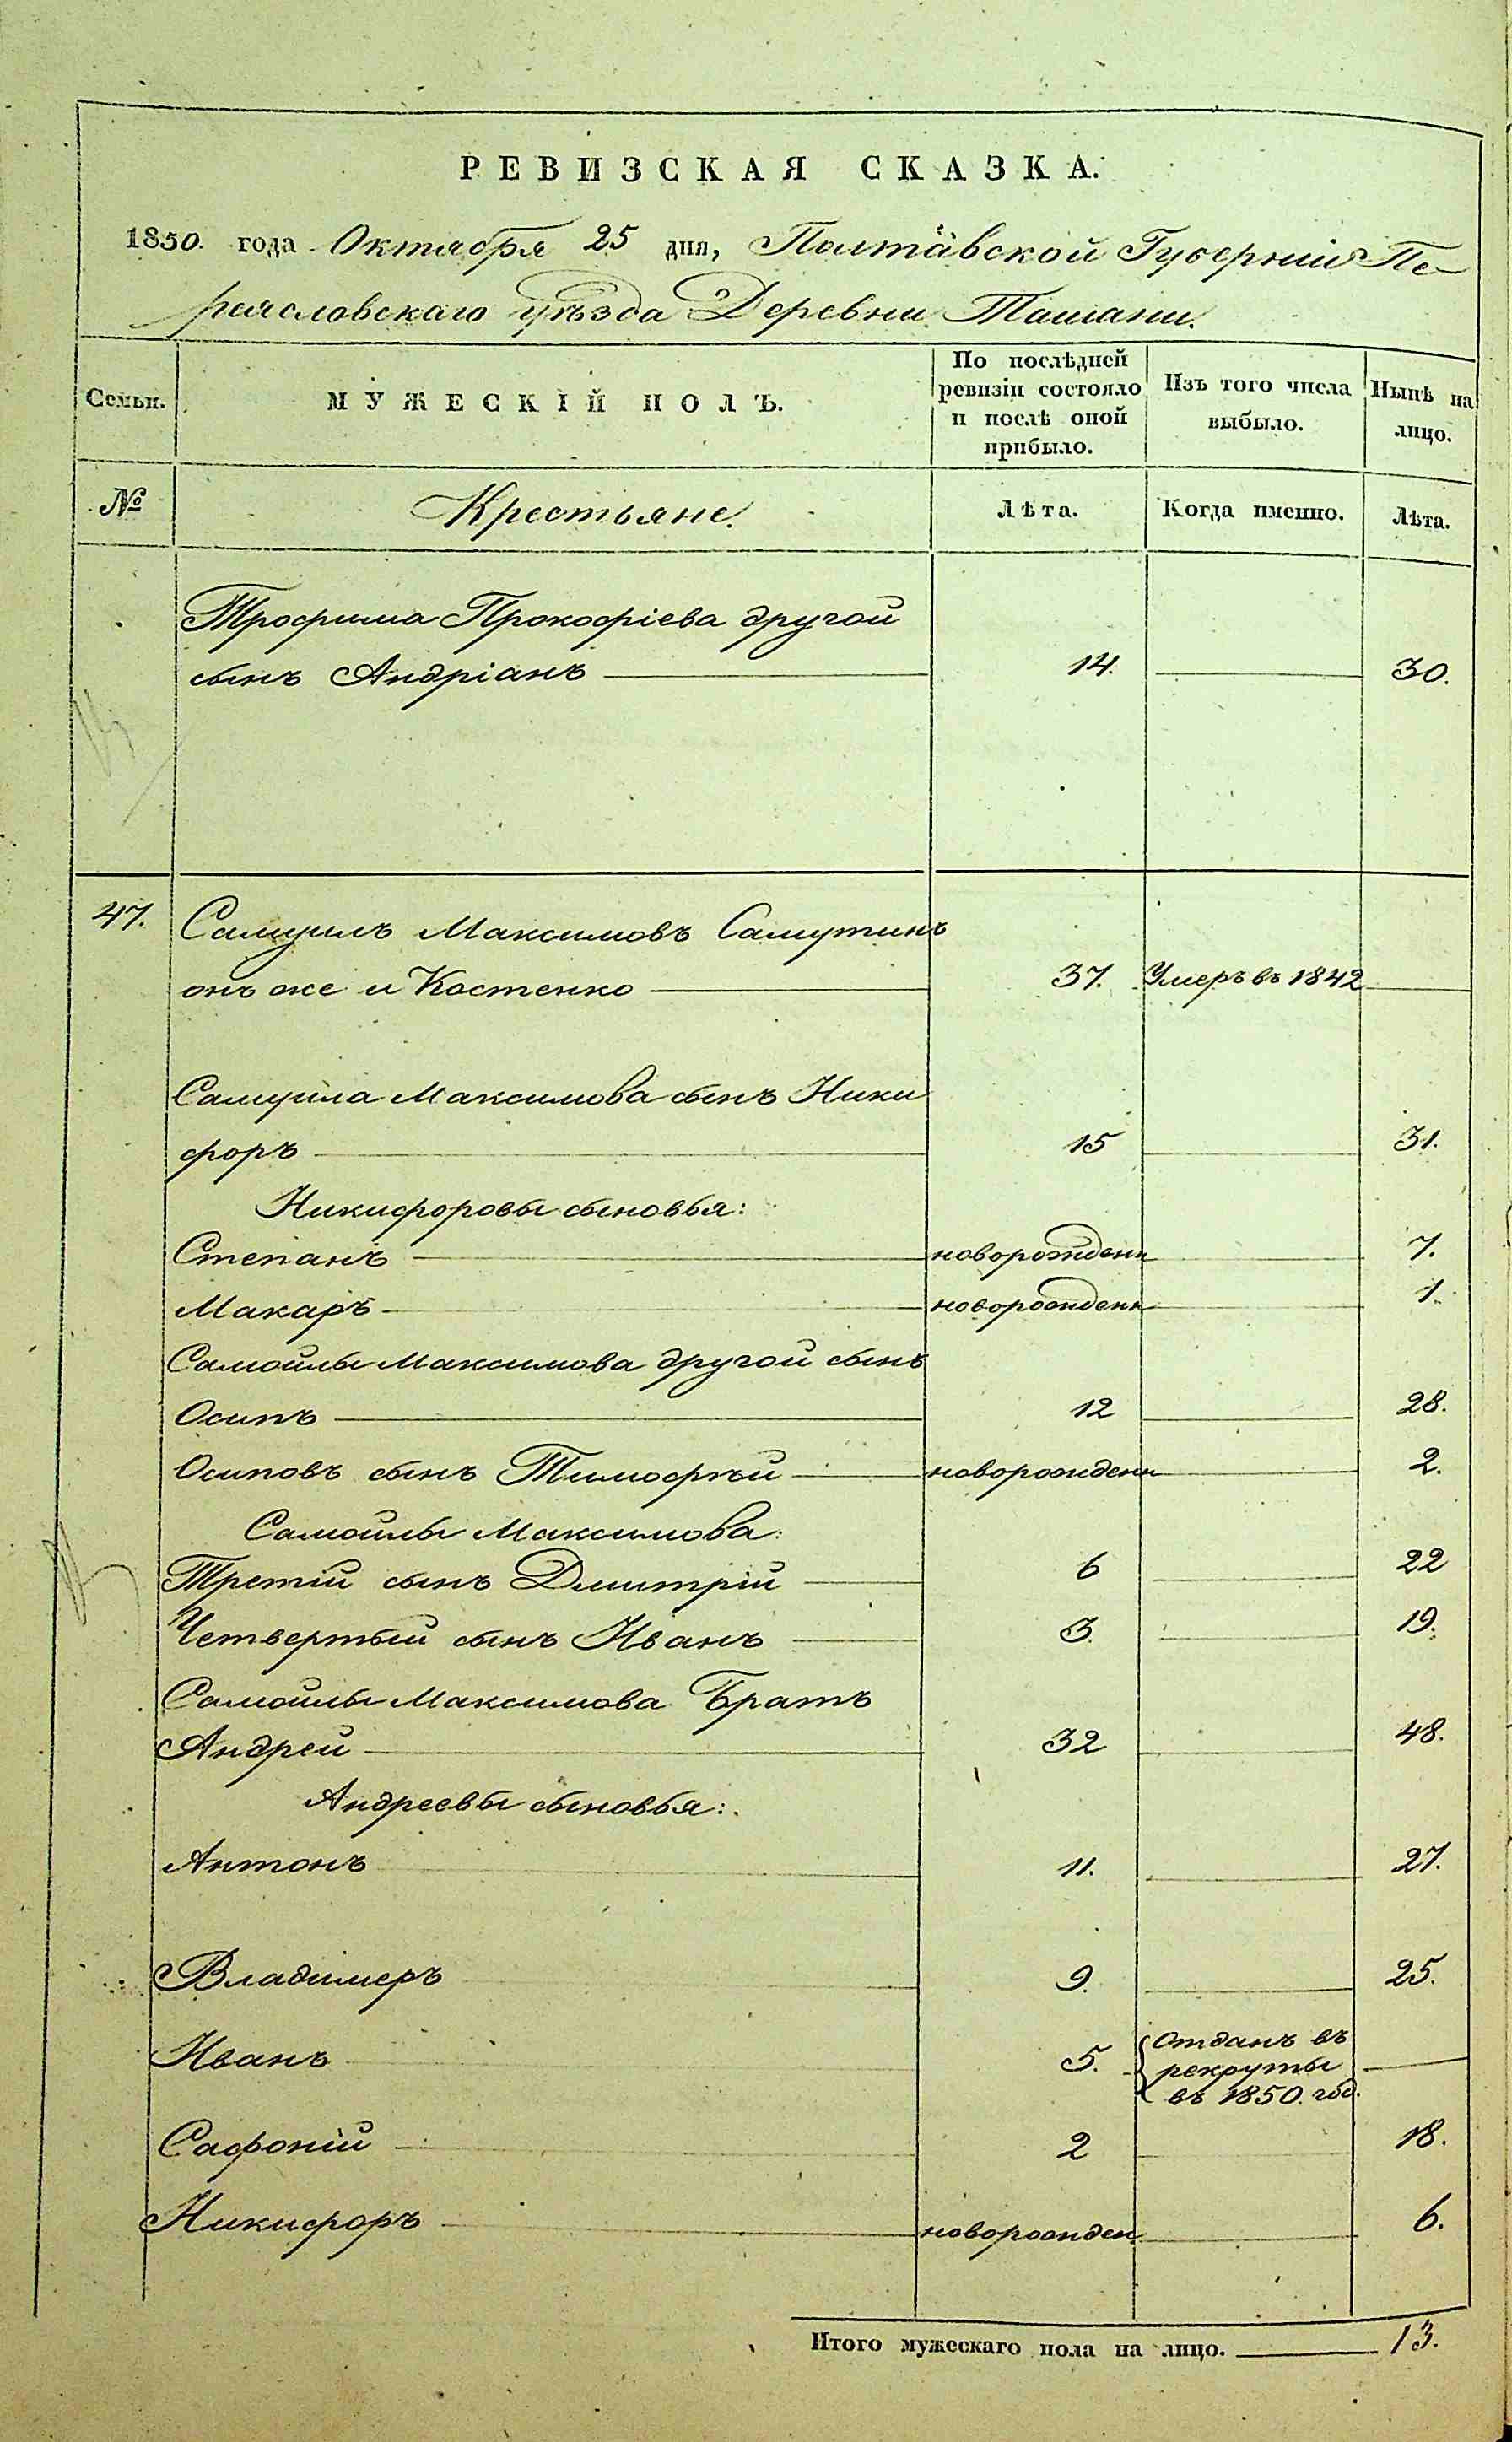 РЕВИЗСКАЯ СКАЗКА.
1850. года Октября 25 дня, Полтавской Губерніи Пе-
реясловскаго уѣзда Деревни Ташани.
Семьи.
МУЖЕСКІЙ ПОЛЪ.
По послѣдней
ревизіи состояло
и послѣ оной
прибыло.
Изъ того числа
выбыло.
Нынѣ на
лицо.
№ Крестьяне. Лѣта. Когда именно. Лѣта.
Трофима Прокофіева другой
сынъ Андріанъ 14. 30.
47. Самуилъ Максимовъ Самутинъ
онъ же и Костенко 37. Умеръ въ 1842
Самуила Максимова сынъ Ники
форъ 15 31.
Никифоровы сыновья:
Степанъ новорожденн 7.
Макаръ новорожденн 1.
Самойлы Максимова другой сынъ
Осипъ 12 28.
Осиповъ сынъ Тимофѣй новорожденн 2.
Самойлы Максимова:
Третій сынъ Дмитрій 6 22
Четвертый сынъ Иванъ 3. 19.
Самойлы Максимова Братъ
Андрей 32 48.
Андреевы сыновья:
Антонъ 11. 27.
Владимеръ 9. 25.
Иванъ 5. Отданъ въ
рекруты
въ 1850. год.
Сафоній 2 18.
Никифоръ новорожден. 6.
Итого мужескаго пола на лицо. 13.